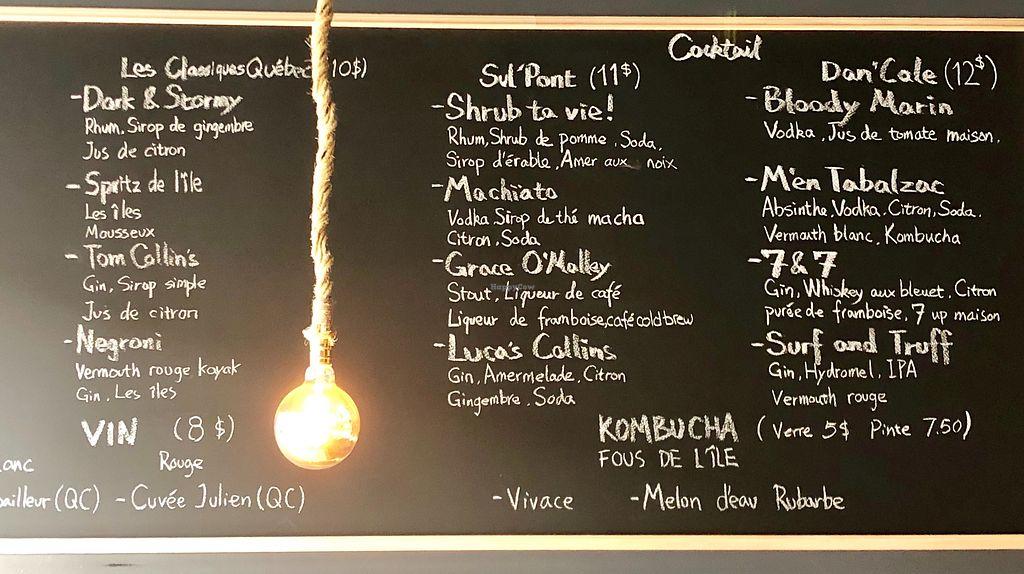 Cocktail
Les Classiques Québec 10$)
-Dark & Stormy
Rhum, Sirop de gingembre
Jus de citron
-Spritz de l'île
Les îles
Mousseux
-Tom Collin's
Gin, Sirop simple
Jus de citron
-Negroni
Vermouth rouge kayak
Gin, Les îles
VIN (8$)
Rouge
ailleur (QC) -Cuvée Julien (QC)
Sul'Pont (11$)
-Shrub ta vie!
Rhum, Shrub de pomme, Soda,
Sirop d'érable, Amer aux noix
-Machiato
Vodka, Sirop de thé macha
Citron, Soda
-Grace O'Malley
Stout, Liqueur de café
Liqueur de framboise, café cold brew
-Luca's Collins
Gin, Amermelade, Citron
Gingembre, Soda
Dan'Cale (12$)
-Bloody Marin
Vodka, Jus de tomate maison,
-M'en Tabalzac
Absinthe, Vodka, Citron, Soda,
Vermouth blanc, Kombucha
-7 & 7
Gin, Whiskey aux bleuet, Citron
purée de framboise, 7 up maison
-Surf and Truff
Gin, Hydromel, IPA
Vermouth rouge
KOMBUCHA (Verre 5$ Pinte 7.50)
FOUS DE L'ÎLE
-Vivace -Melon d'eau Rubarbe
HappyCow